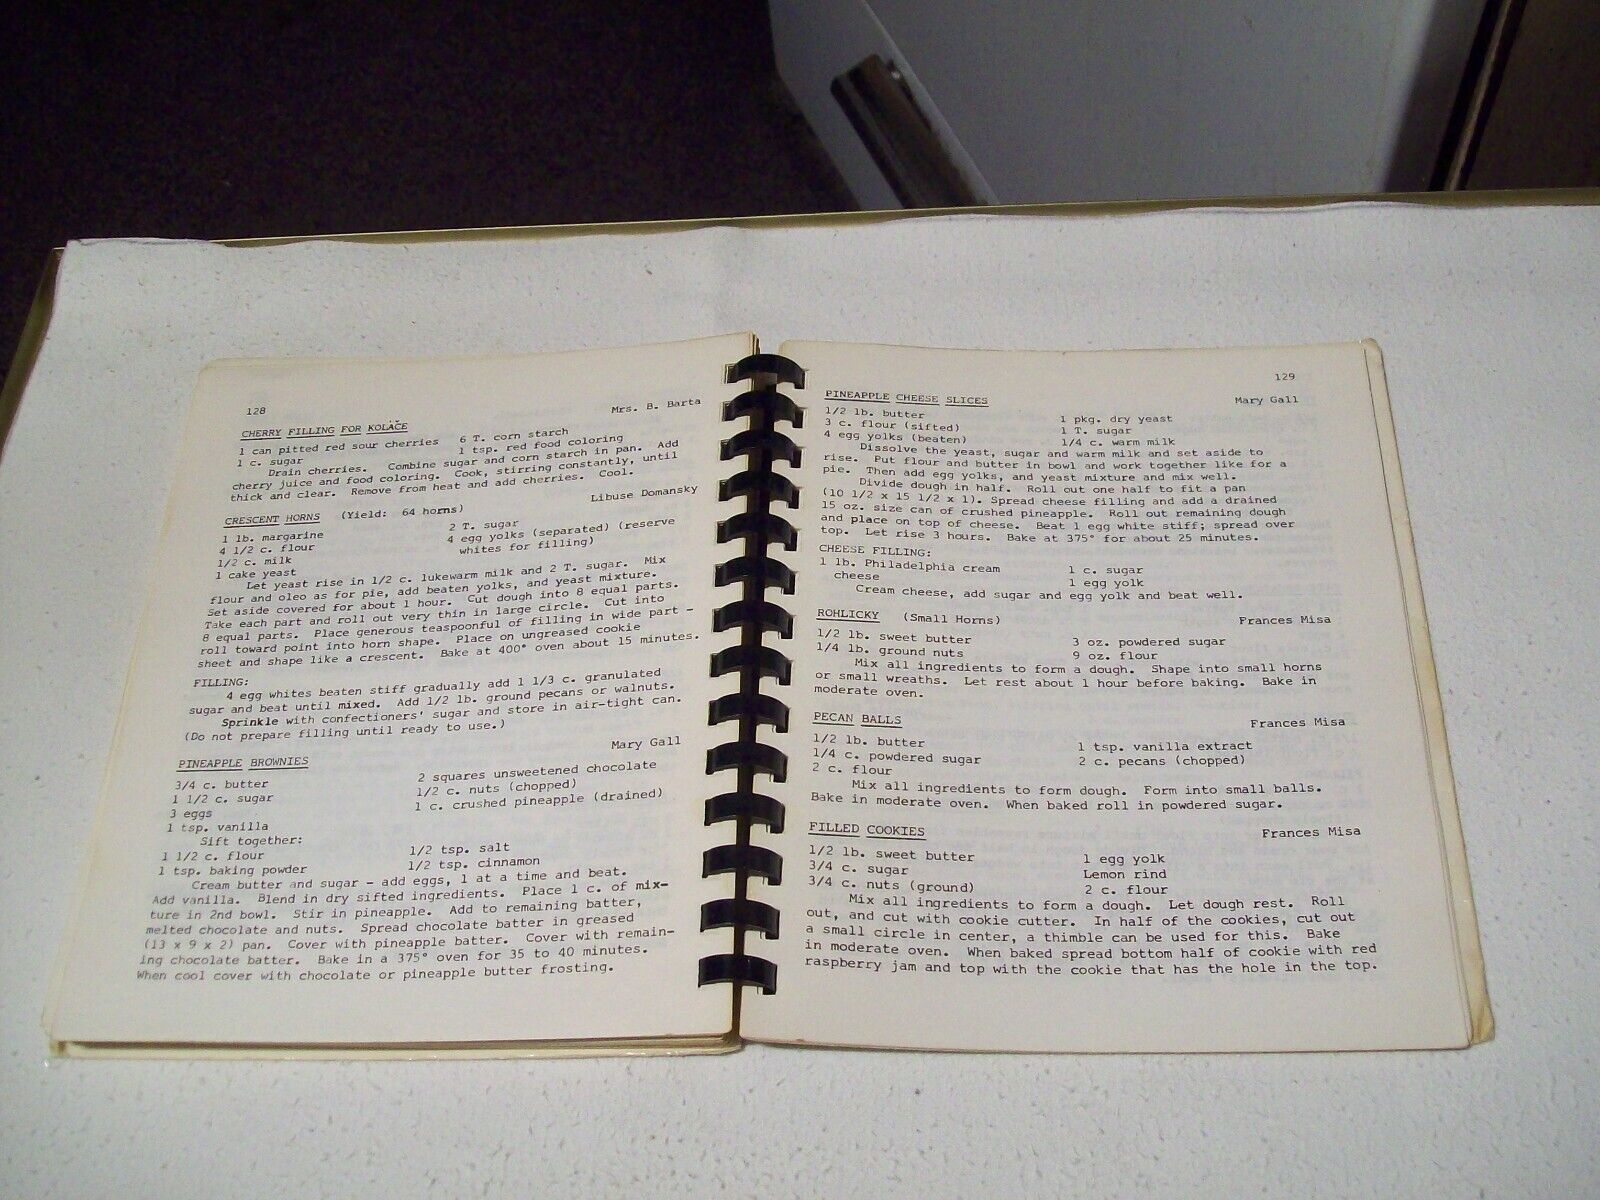 128
Mrs. B. Barta
CHERRY FILLING FOR KOLAČE
1 can pitted red sour cherries 6 T. corn starch
1 c. sugar 1 tsp. red food coloring
Drain cherries. Combine sugar and corn starch in pan. Add
cherry juice and food coloring. Cook, stirring constantly, until
thick and clear. Remove from heat and add cherries. Cool.
Libuse Domansky
CRESCENT HORNS (Yield: 64 horns)
1 lb. margarine 2 T. sugar
4 1/2 c. flour 4 egg yolks (separated) (reserve
1/2 c. milk whites for filling)
1 cake yeast
Let yeast rise in 1/2 c. lukewarm milk and 2 T. sugar. Mix
flour and oleo as for pie, add beaten yolks, and yeast mixture.
Set aside covered for about 1 hour. Cut dough into 8 equal parts.
Take each part and roll out very thin in large circle. Cut into
8 equal parts. Place generous teaspoonful of filling in wide part -
roll toward point into horn shape. Place on ungreased cookie
sheet and shape like a crescent. Bake at 400° oven about 15 minutes.
FILLING:
4 egg whites beaten stiff gradually add 1 1/3 c. granulated
sugar and beat until mixed. Add 1/2 lb. ground pecans or walnuts.
Sprinkle with confectioners' sugar and store in air-tight can.
(Do not prepare filling until ready to use.)
Mary Gall
PINEAPPLE BROWNIES
3/4 c. butter 2 squares unsweetened chocolate
1 1/2 c. sugar 1/2 c. nuts (chopped)
3 eggs 1 c. crushed pineapple (drained)
1 tsp. vanilla
Sift together:
1 1/2 c. flour 1/2 tsp. salt
1 tsp. baking powder 1/2 tsp. cinnamon
Cream butter and sugar - add eggs, 1 at a time and beat.
Add vanilla. Blend in dry sifted ingredients. Place 1 c. of mix-
ture in 2nd bowl. Stir in pineapple. Add to remaining batter,
melted chocolate and nuts. Spread chocolate batter in greased
(13 x 9 x 2) pan. Cover with pineapple batter. Cover with remain-
ing chocolate batter. Bake in a 375° oven for 35 to 40 minutes.
When cool cover with chocolate or pineapple butter frosting.
129
PINEAPPLE CHEESE SLICES Mary Gall
1/2 lb. butter 1 pkg. dry yeast
3 c. flour (sifted) 1 T. sugar
4 egg yolks (beaten) 1/4 c. warm milk
Dissolve the yeast, sugar and warm milk and set aside to
rise. Put flour and butter in bowl and work together like for a
pie. Then add egg yolks, and yeast mixture and mix well.
Divide dough in half. Roll out one half to fit a pan
(10 1/2 x 15 1/2 x 1). Spread cheese filling and add a drained
15 oz. size can of crushed pineapple. Roll out remaining dough
and place on top of cheese. Beat 1 egg white stiff; spread over
top. Let rise 3 hours. Bake at 375° for about 25 minutes.
CHEESE FILLING:
1 lb. Philadelphia cream 1 c. sugar
cheese 1 egg yolk
Cream cheese, add sugar and egg yolk and beat well.
ROHLICKY (Small Horns) Frances Misa
1/2 lb. sweet butter 3 oz. powdered sugar
1/4 lb. ground nuts 9 oz. flour
Mix all ingredients to form a dough. Shape into small horns
or small wreaths. Let rest about 1 hour before baking. Bake in
moderate oven.
PECAN BALLS Frances Misa
1/2 lb. butter 1 tsp. vanilla extract
1/4 c. powdered sugar 2 c. pecans (chopped)
2 c. flour
Mix all ingredients to form dough. Form into small balls.
Bake in moderate oven. When baked roll in powdered sugar.
FILLED COOKIES Frances Misa
1/2 lb. sweet butter 1 egg yolk
3/4 c. sugar Lemon rind
3/4 c. nuts (ground) 2 c. flour
Mix all ingredients to form a dough. Let dough rest. Roll
out, and cut with cookie cutter. In half of the cookies, cut out
a small circle in center, a thimble can be used for this. Bake
in moderate oven. When baked spread bottom half of cookie with red
raspberry jam and top with the cookie that has the hole in the top.